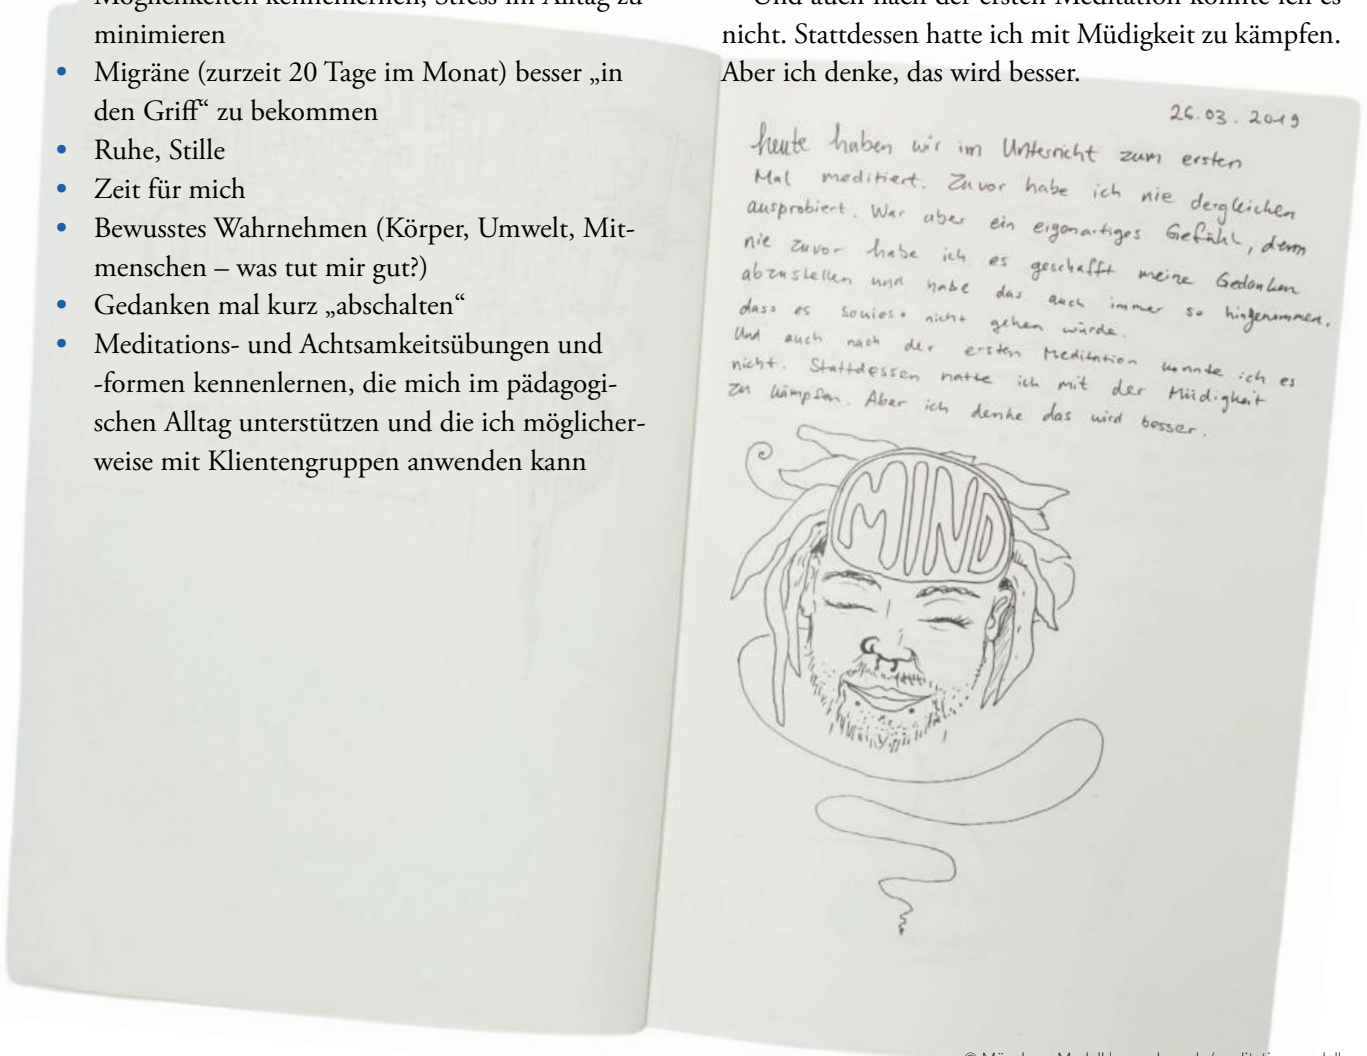 Möglichkeiten kennenlernen, Stress im Alltag zu
minimieren
• Migräne (zurzeit 20 Tage im Monat) besser „in
den Griff“ zu bekommen
• Ruhe, Stille
• Zeit für mich
• Bewusstes Wahrnehmen (Körper, Umwelt, Mit-
menschen – was tut mir gut?)
• Gedanken mal kurz „abschalten“
• Meditations- und Achtsamkeitsübungen und
-formen kennenlernen, die mich im pädagogi-
schen Alltag unterstützen und die ich möglicher-
weise mit Klientengruppen anwenden kann
Und auch nach der ersten Meditation konnte ich es
nicht. Stattdessen hatte ich mit Müdigkeit zu kämpfen.
Aber ich denke, das wird besser.
26.03.2019
heute haben wir im Unterricht zum ersten
Mal meditiert. Zuvor habe ich nie dergleichen
ausprobiert. War aber ein eigenartiges Gefühl, denn
nie zuvor habe ich es geschafft meine Gedanken
abzustellen und habe das auch immer so hingenommen,
dass es sowieso nicht gehen würde.
Und auch nach der ersten Meditation konnte ich es
nicht. Stattdessen hatte ich mit der Müdigkeit
zu kämpfen. Aber ich denke das wird besser.
MIND